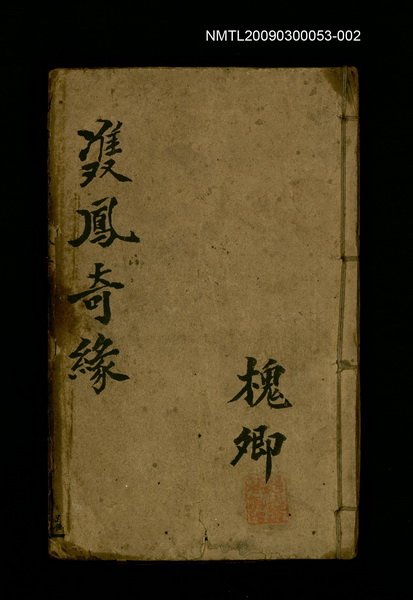 NMTL20090300053-002
雙鳳奇緣
槐卿